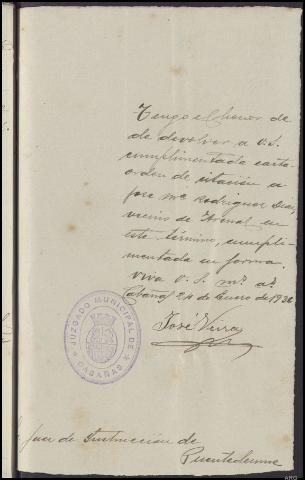 Tengo el honor de
de devolver a V.S.
cumplimentada carta
orden de citación a
José Mª Rodriguez Diaz,
vecino de Arenal en
este término, cumpli-
mentada en forma.
Viva V. S. mˢ aˢ
Cabañas 24 de Enero de 1936
José
JUZGADO MUNICIPAL DE
CABAÑAS
Juez de Instrucción de
Puentedeume